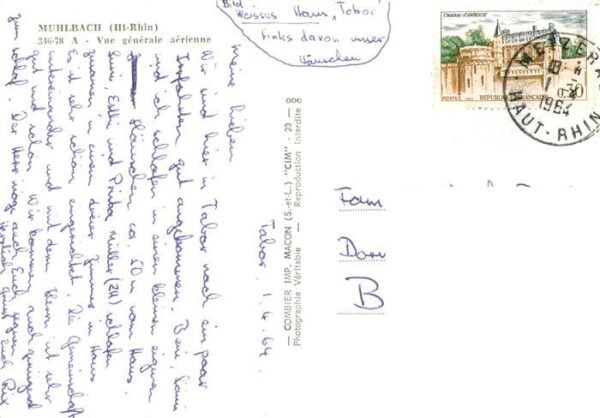 MUHLBACH (Ht-Rhin)
346-78 A - Vue générale aérienne
Bild
Weisses Haus, "Tabor"
links davon unser
Häuschen
CHATEAU D'AMBOISE
0,30
POSTES
REPUBLIQUE FRANÇAISE
METZERAL
18 H
1964
HAUT-RHIN
Tabor, 1.4.64.
Meine Lieben
Wir sind hier in Tabor nach ein paar
gut angekommen. Beni,
und ich schlafen in einem kleinen eigenen
Häuschen ca. 50 m vom Haus.
Susi, Edith und Müller (ZH) schlafen
zusammen in einem Zimmer im Haus
Es ist sehr schön eingerichtet. Die Gemeinschaft
untereinander und mit dem Herrn ist sehr
gut und schön. Wir kommen auch genügend
zum Schlaf. Der Herr mög auch Euch segnen
Herzlich grüsst Euch
— COMBIER IMP. MACON (S.-et-L.) "CIM" - 23 — 006
Photographie Véritable - Reproduction Interdite
Fam
Dom
B